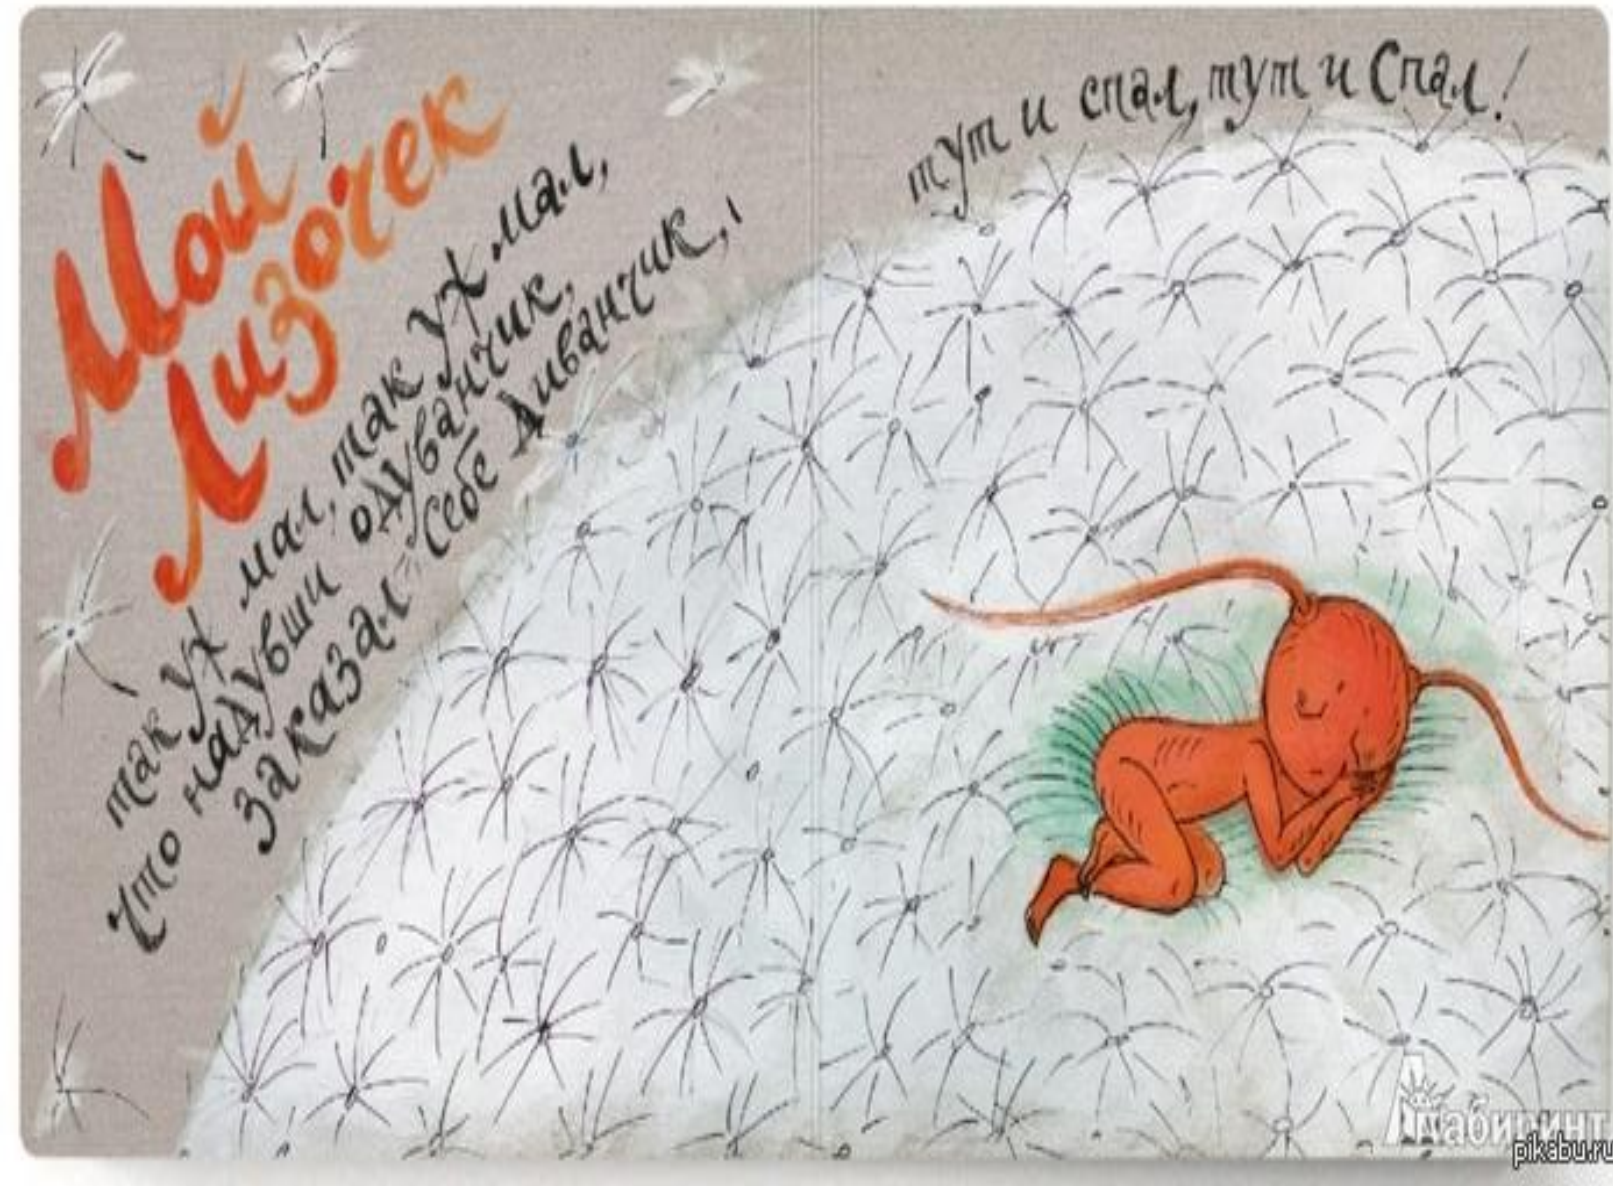 Мой
Лизочек
так уж мал, так уж мал,
что надувши одуванчик,
заказал себе диванчик,
тут и спал, тут и спал!
Лабиринт
pikabu.ru